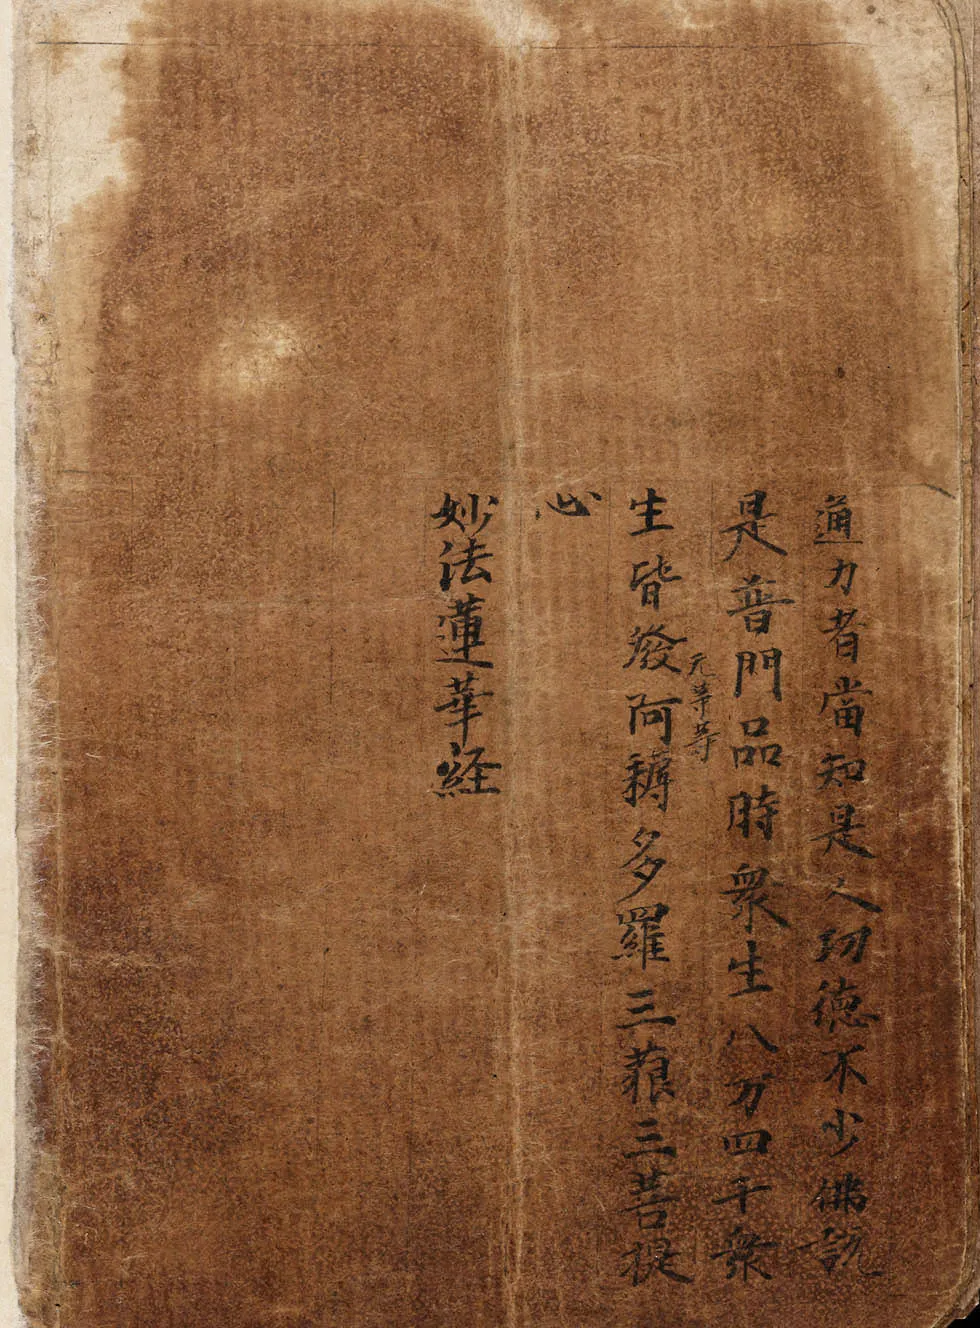 通力者當知是人功徳不少佛說
是普門品時衆生八万四千衆
无等等
生皆發阿耨多羅三藐三菩提
心
妙法蓮華経